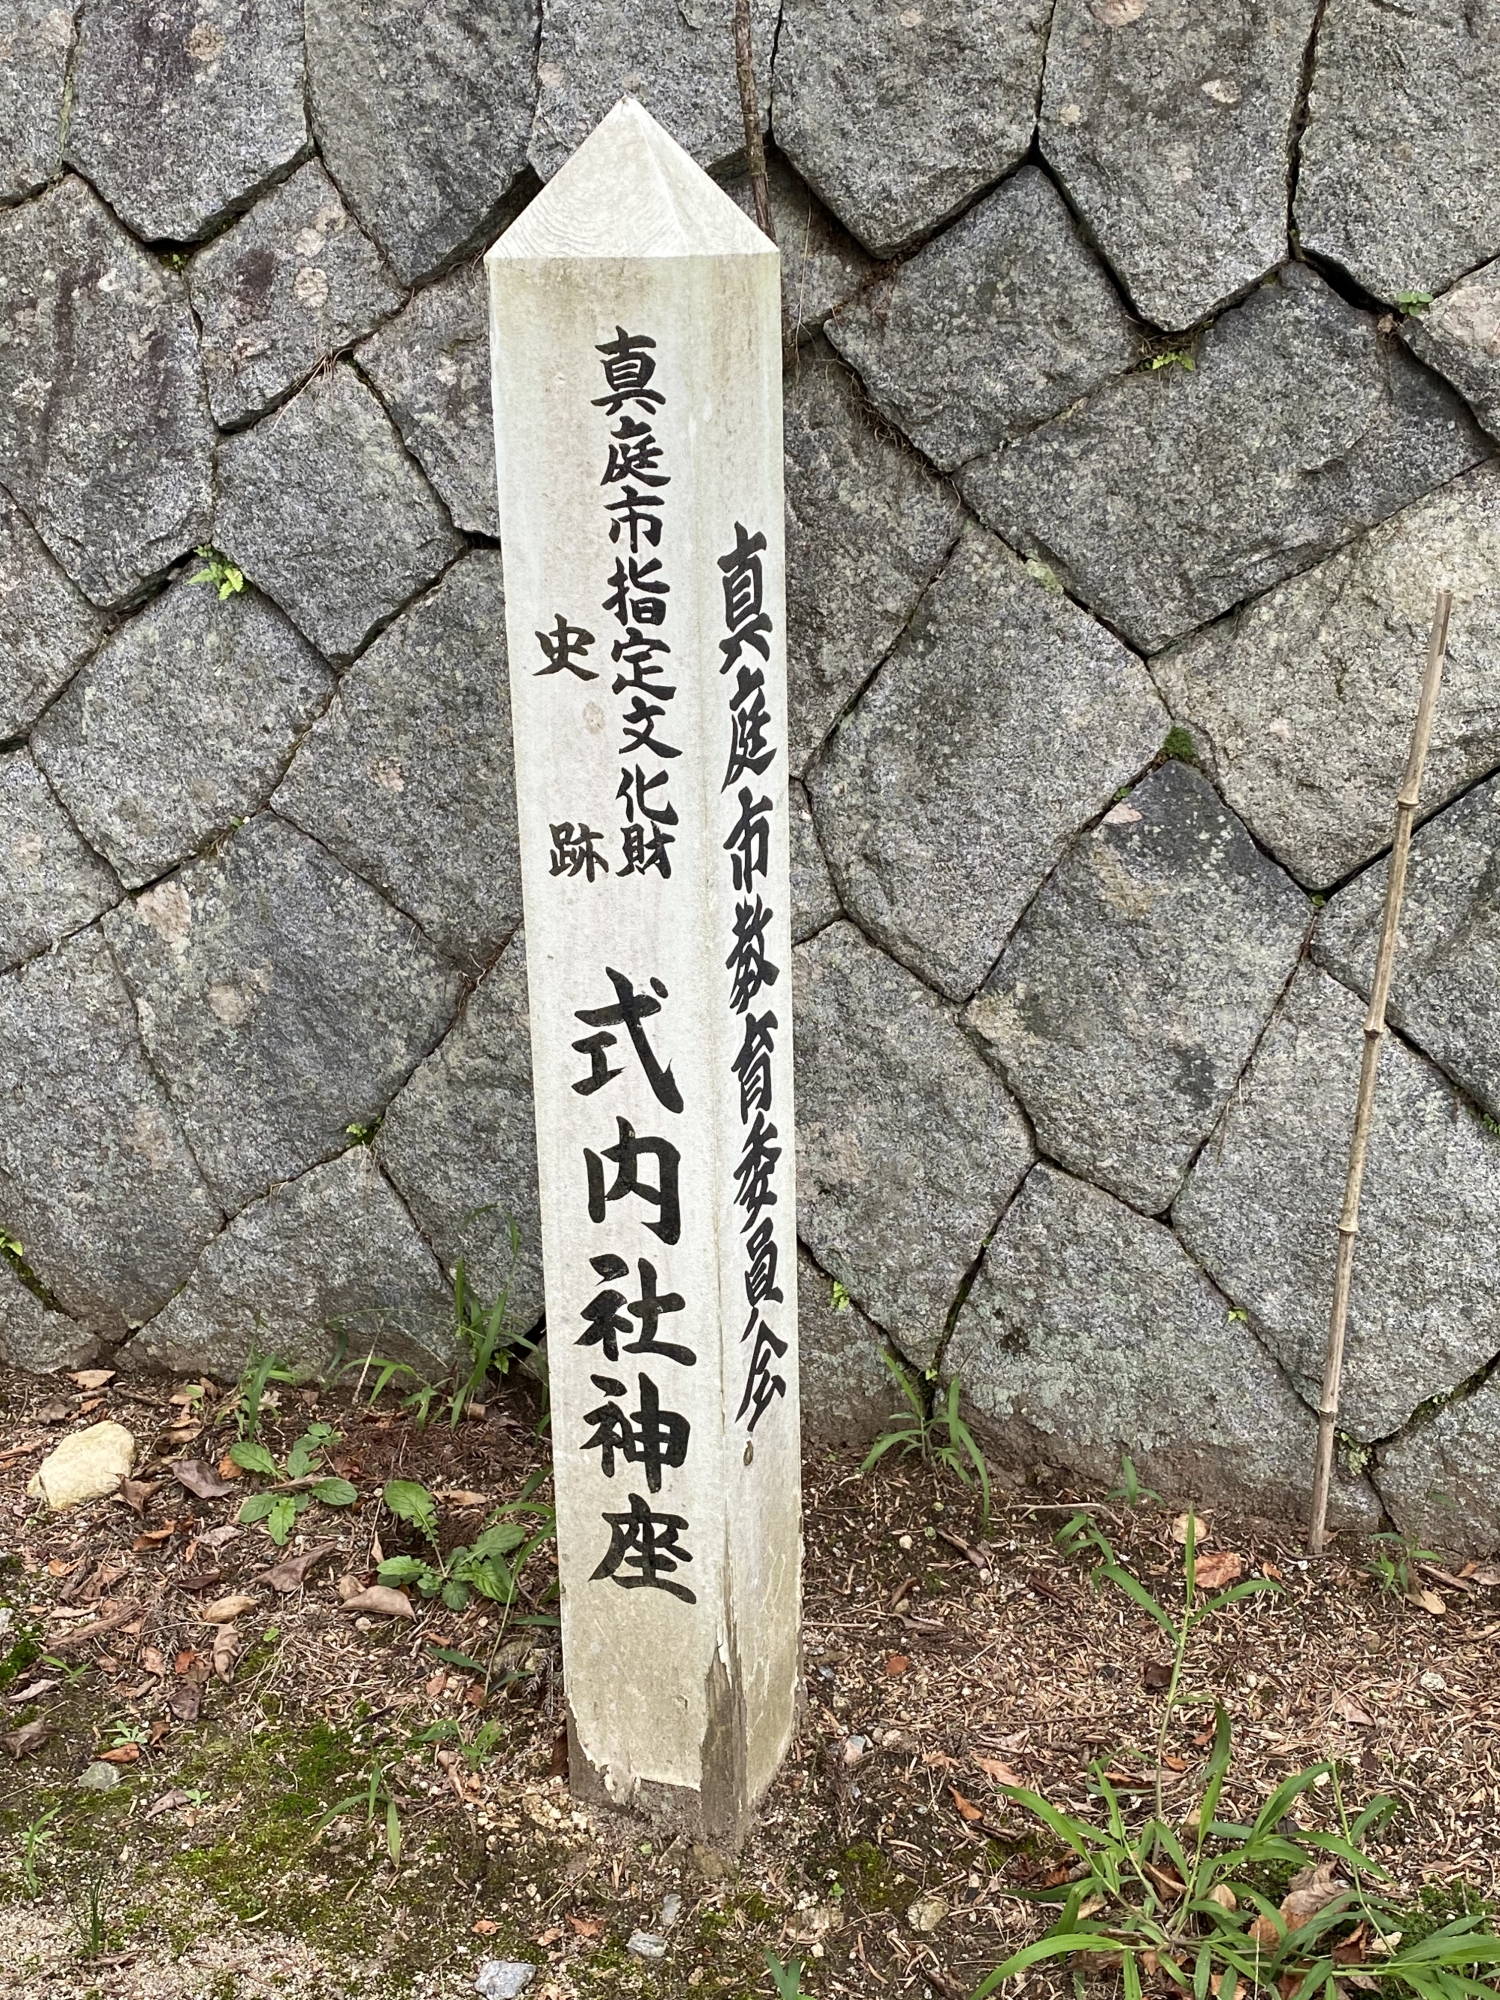 真庭市指定文化財
史跡
式内社神座
真庭市教育委員会